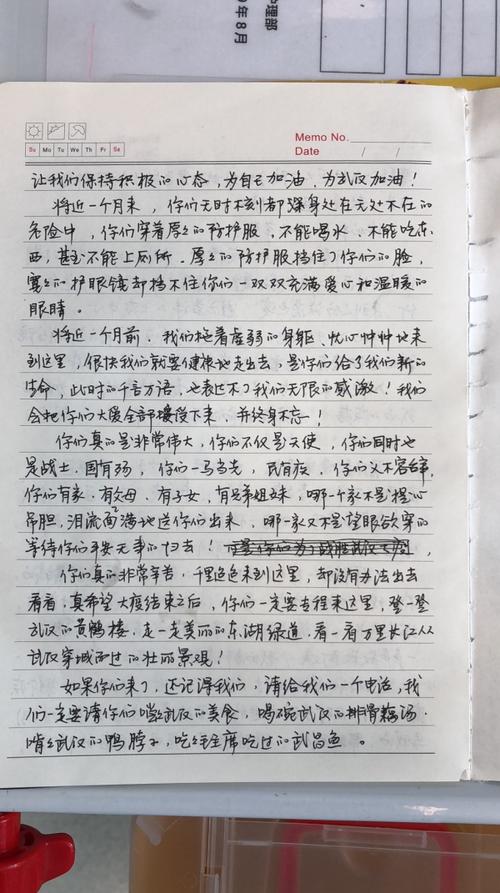 护理部
年8月
Memo No.
Su Mo Tu We Th Fr Sa
Date / /
让我们保持积极的心态，为自己加油，为武汉加油！
将近一个月来，你们无时不刻都深身处在无处不在的
危险中，你们穿着厚厚的防护服，不能喝水，不能吃东
西，甚至不能上厕所。厚厚的防护服挡住了你们的脸，
雾雾的护眼镜却挡不住你们一双双充满爱心和温暖的
眼睛。
将近一个月前，我们拖着虚弱的身躯、忧心忡忡地来
到这里，很快我们就要健康地走出去，是你们给了我们新的
生命，此时的千言万语，也表达不了我们无限的感激！我们
会把你们大爱全部接受下来，并终身不忘！
你们真的是非常伟大，你们不仅是天使，你们同时也
是战士，国有殇，你们一马当先，民有疾，你们义不容辞，
你们有家，有父母，有子女，有兄弟姐妹，哪一个家不是提心
吊胆，泪流面满地送你们出来，哪一家又不是望眼欲穿的
等待你们平安无事的归去！
你们真的非常辛苦，千里迢迢来到这里，却没有办法出去
看看，真希望大疫结束之后，你们一定要专程来这里，登一登
武汉的黄鹤楼，走一走美丽的东湖绿道，看一看万里长江从
武汉穿城而过的壮丽景观！
如果你们来了，还记得我们，请给我们一个电话，我
们一定要请你们尝尝武汉的美食，喝碗武汉的排骨藕汤，
啃啃武汉的鸭脖子，吃吃毛主席吃过的武昌鱼。